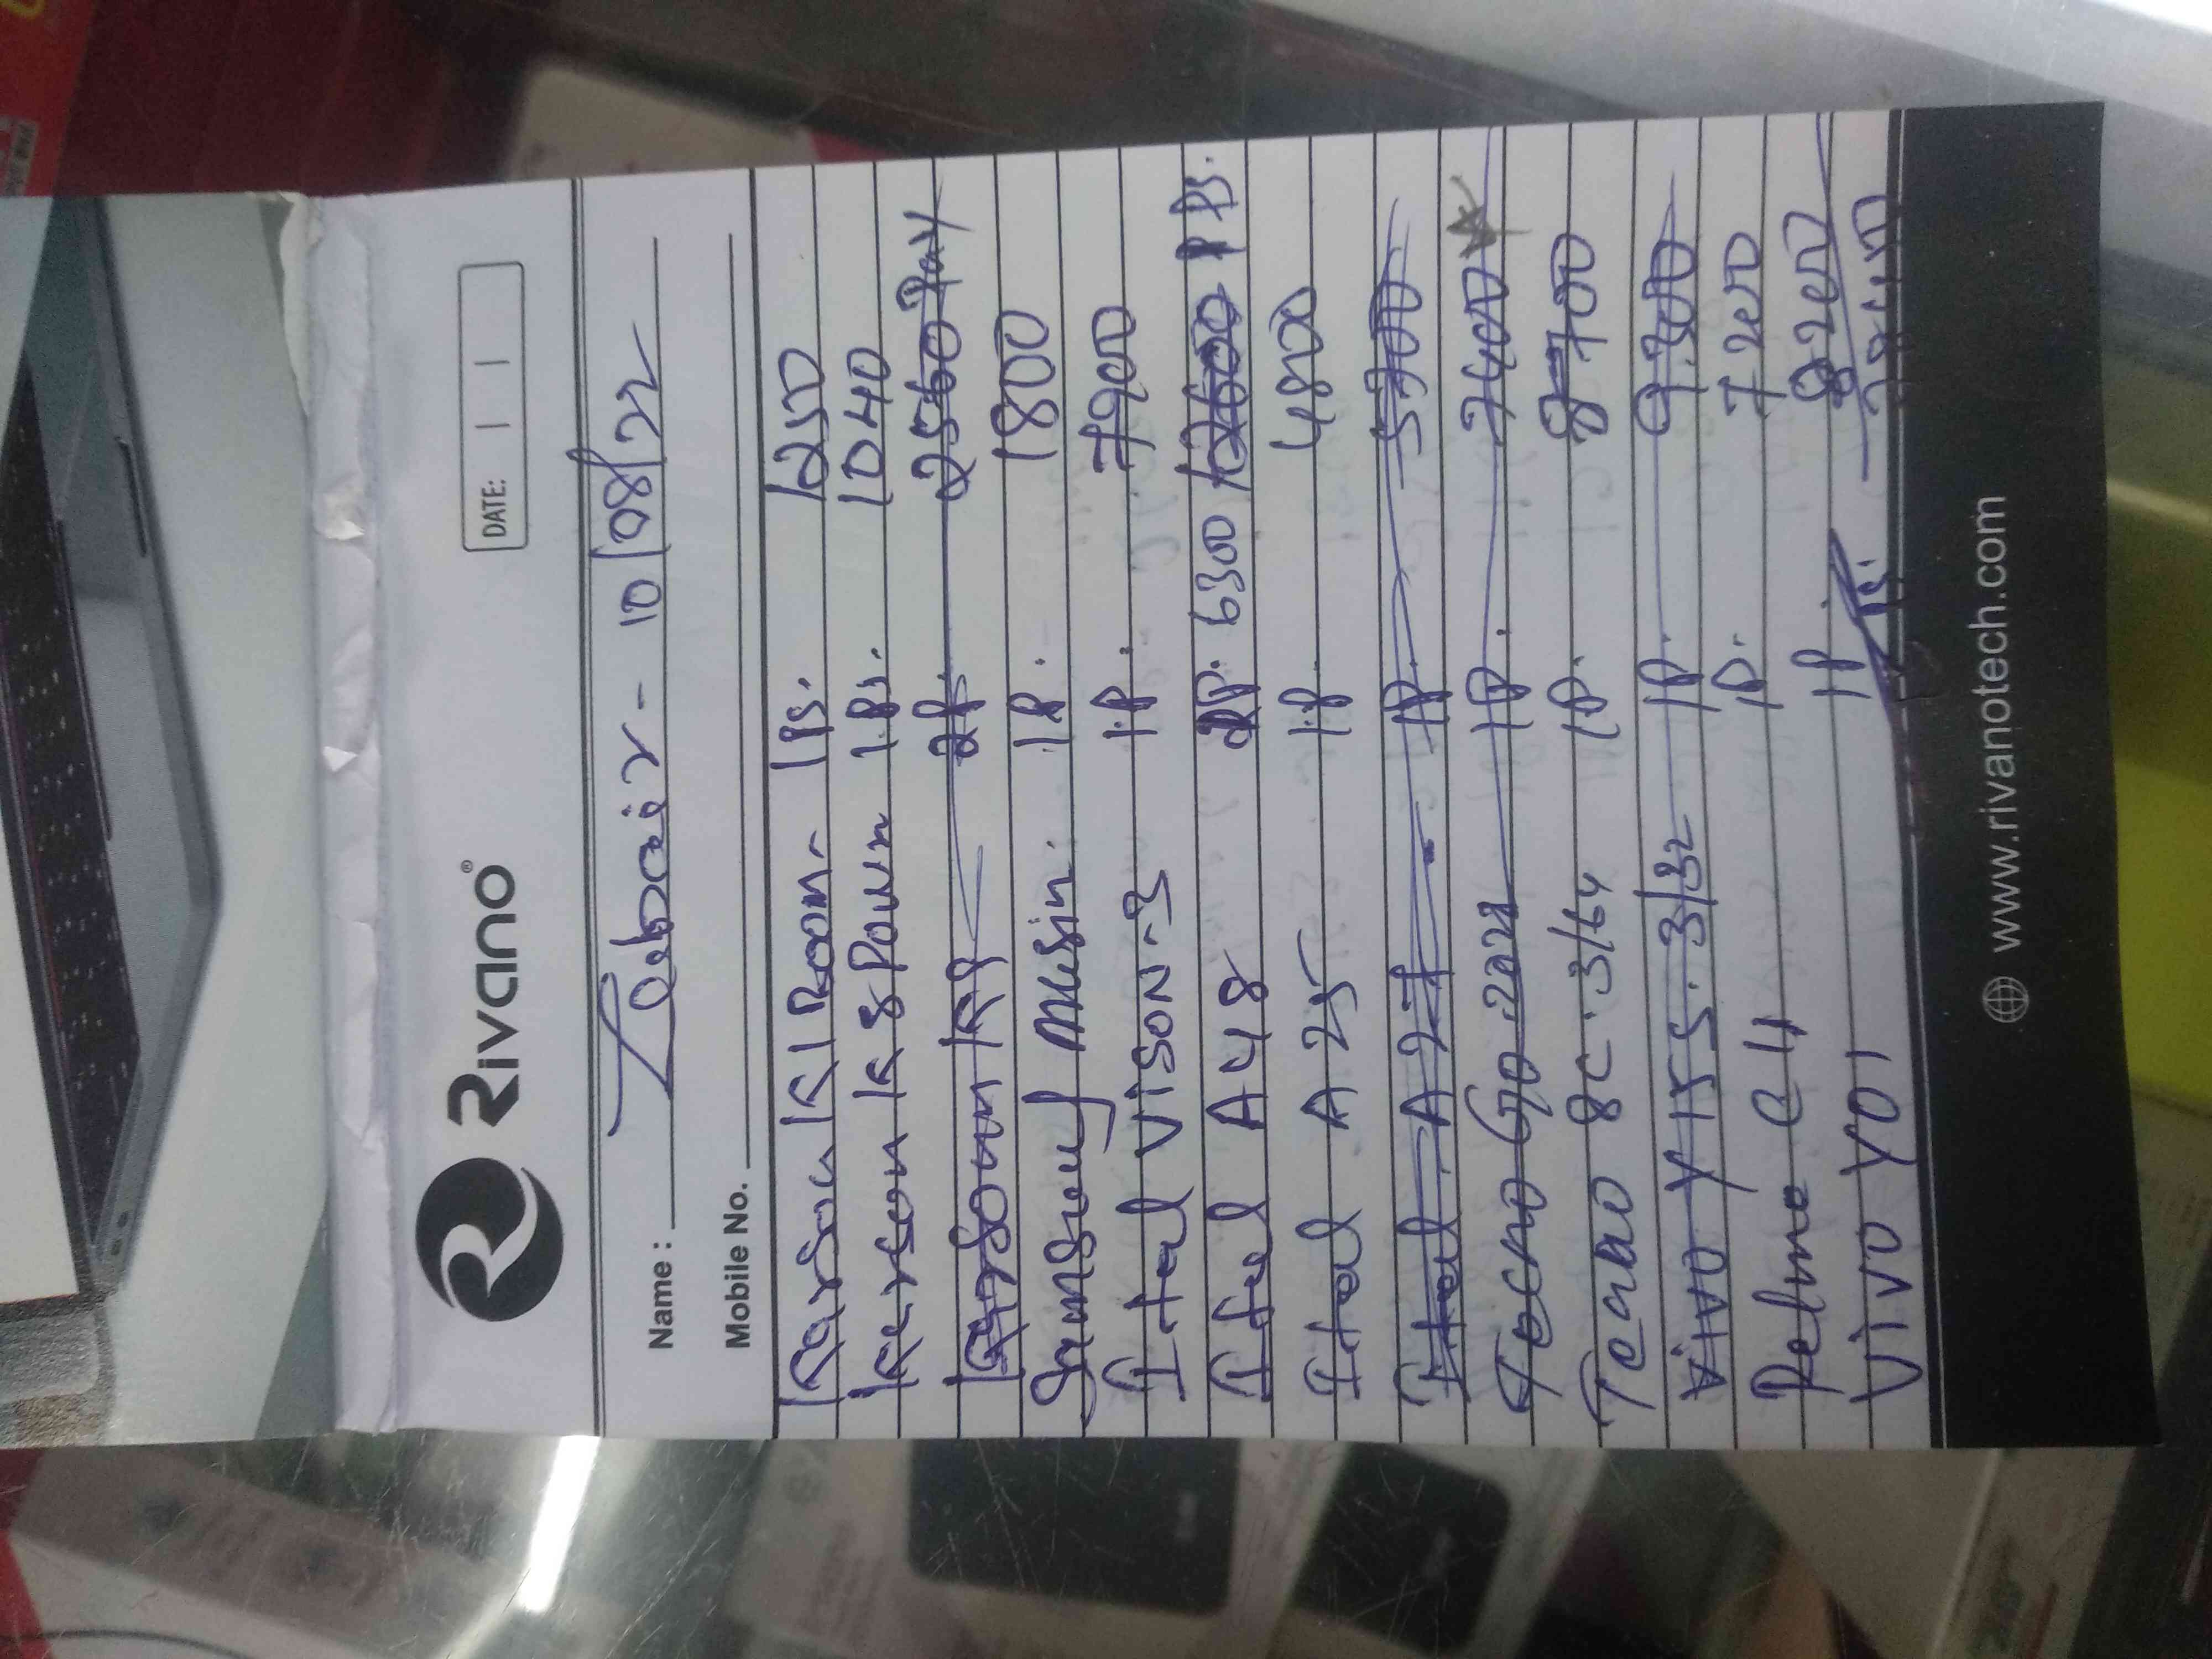 Rivano®
DATE: | | |
Name: Zebair - 10/08/22
Mobile No.
Karson K1 Room - 1 Ps. 1250
Karson K 8 Pown 1 Ps. 1040
K9 2P. 2560 Pay
Samsung 1 P. 1800
Itel Vison-3 1P. 7900
Itel A48 2P. 6300 12600 1 Ps.
Itel A25 1P. 4800
Itel A27 - 1P. 5300
Tecno Go. 2022 1P. 7400
Tecno 8C. 3/64 1P. 8700
Vivo Y15S. 3/32 1P. 9300
Relme C11 1P. 7200
Vivo Y01 1P. 8200
www.rivanotech.com